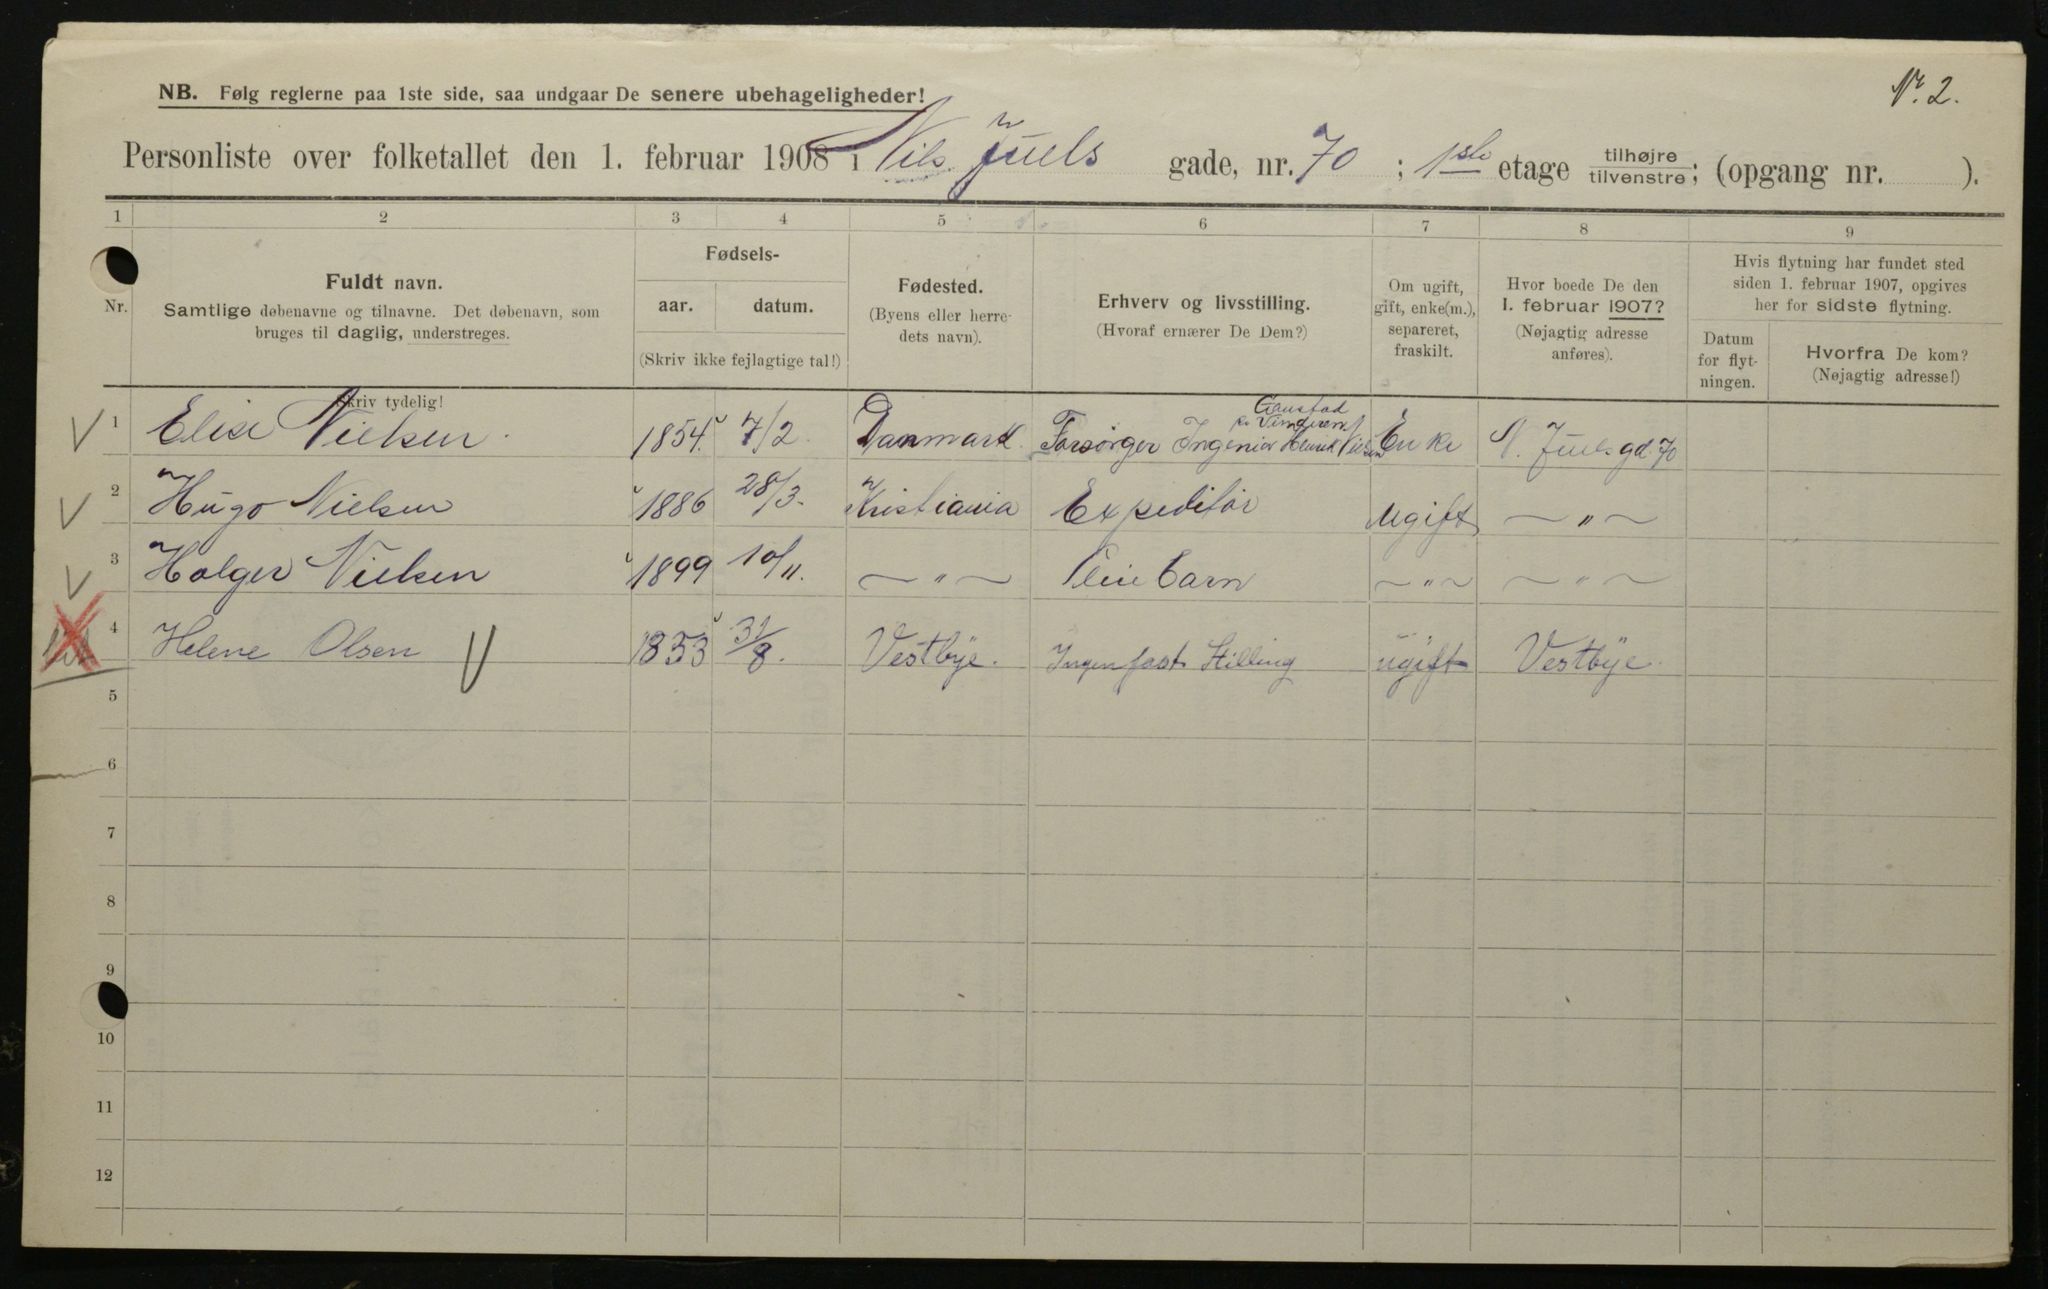 Nr. 2.
NB. Følg reglerne paa 1ste side, saa undgaar De senere ubehageligheder!
Personliste over folketallet den 1. februar 1908 i Nils Juels gade, nr. 70 ; 1ste etage tilhøjre tilvenstre; (opgang nr. ).
1 2 3 4 5 6 7 8 9
Nr.
Fuldt navn.
Samtlige døbenavne og tilnavne. Det døbenavn, som
bruges til daglig, understreges.
Skriv tydelig!
Fødsels-
aar. datum.
(Skriv ikke fejlagtige tal!)
Fødested.
(Byens eller herre-
dets navn).
Erhverv og livsstilling.
(Hvoraf ernærer De Dem?)
Om ugift,
gift, enke(m.),
separeret,
fraskilt.
Hvor boede De den
1. februar 1907?
(Nøjagtig adresse
anføres).
Hvis flytning har fundet sted
siden 1. februar 1907, opgives
her for sidste flytning.
Datum
for flyt-
ningen.
Hvorfra De kom?
(Nøjagtig adresse!)
Gaustad
Vinderen
1 Elise Nielsen. 1854. 7/2. Danmark. Forsørger Ingeniør Henrik Nielsen Enke N. Juels gd. 70
2 Hugo Nielsen 1886 28/3. Kristiania Expeditør Ugift — " —
3 Holger Nielsen 1899 10/11. — " — Pleiebarn — " — — " —
4 Helene Olsen 1853 31/8. Vestbye. Ingen fast Stilling ugift Vestbye.
5
6
7
8
9
10
11
12